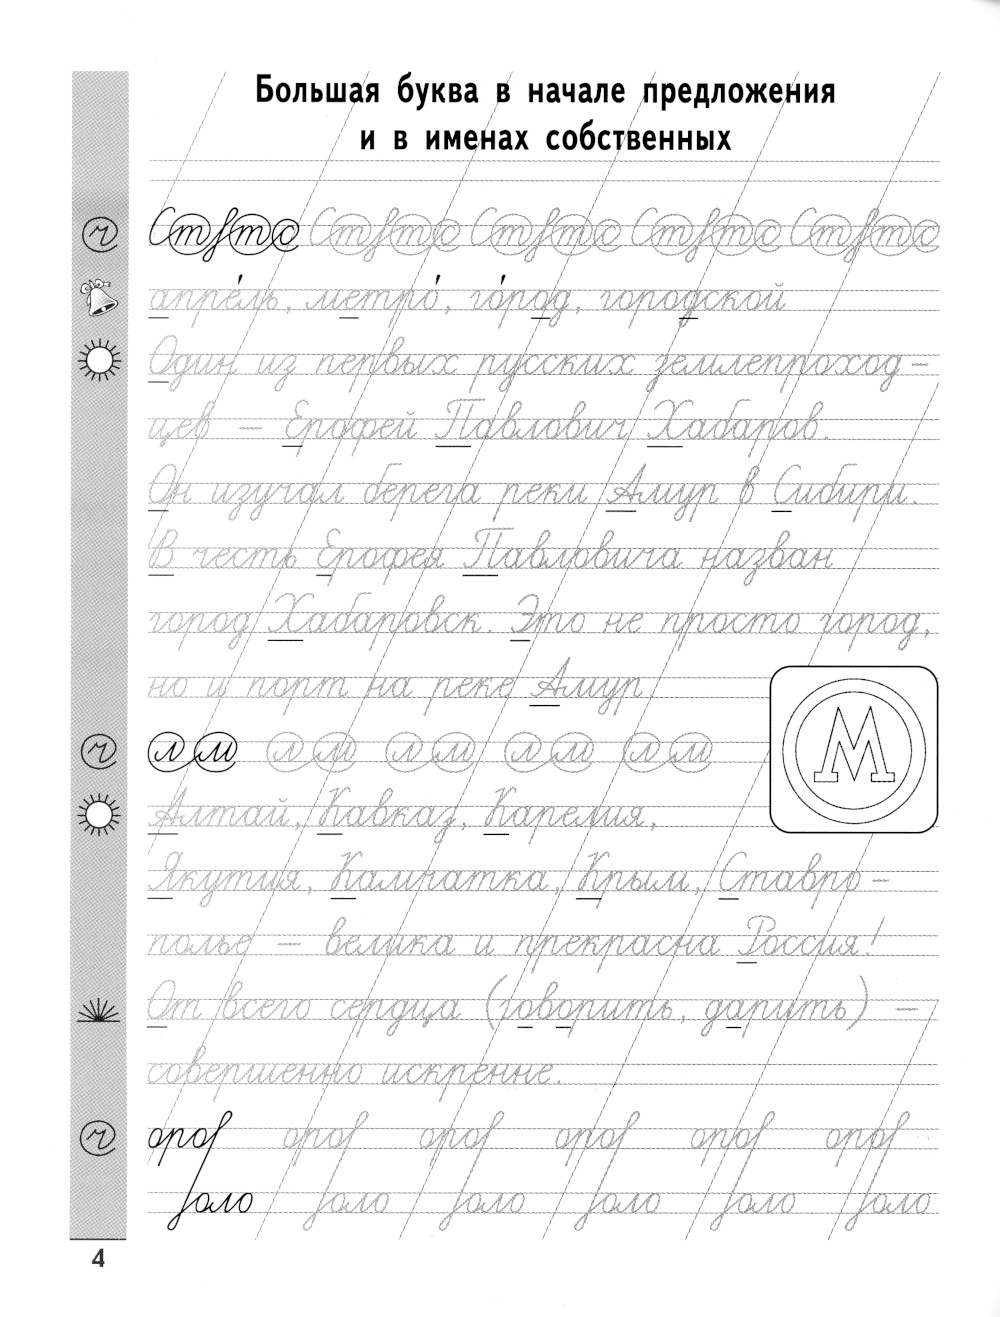 Большая буква в начале предложения
и в именах собственных
апре́ль, метро́, го́род, городской
Один из первых русских землепроход-
цев – Ерофей Павлович Хабаров.
Он изучал берега реки Амур в Сибири.
В честь Ерофея Павловича назван
город Хабаровск. Это не просто город,
но и порт на реке Амур
М
л м л м л м л м л м
Алтай, Кавказ, Карелия,
Якутия, Камчатка, Крым, Ставро-
полье – велика и прекрасна Россия!
От всего сердца (говорить, дарить) –
совершенно искренне.
оро оро оро оро оро оро
оло оло оло оло оло оло
4